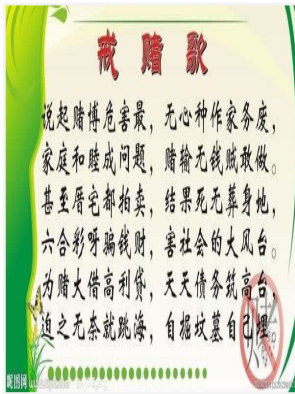 戒赌歌
说起赌博危害最，无心种作家务废，
家庭和睦成问题，赌输无钱贼敢做。
甚至厝宅都拍卖，结果死无葬身地，
六合彩呀骗钱财，害社会的大风台。
为赌大借高利贷，天天债务筑高台，
迫之无奈就跳海，自掘坟墓自己埋。
昵图网